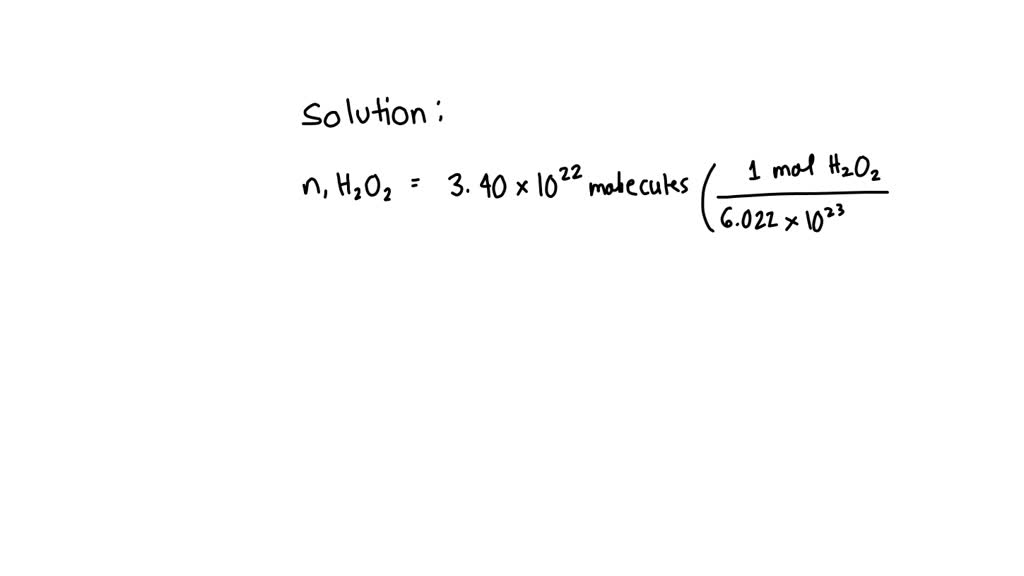 Solution:
n, H₂O₂ = 3.40 × 10²² molecules ( 1 mol H₂O₂
6.022 × 10²³